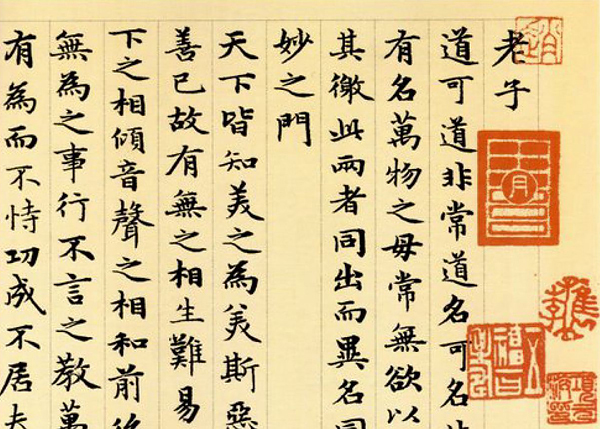 老子
道可道非常道名可名非
有名萬物之母常無欲以
其徼此兩者同出而異名同
妙之門
天下皆知美之為美斯惡
善已故有無之相生難易
下之相傾音聲之相和前後
無為之事行不言之教萬
有為而不恃功成不居夫